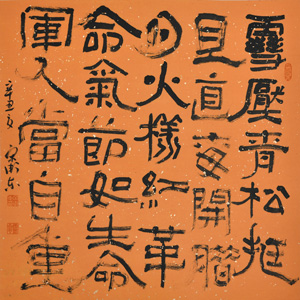 雪壓青松挺
且直開臘
月火樣紅革
命氣節如生命
軍人當自重
辛丑